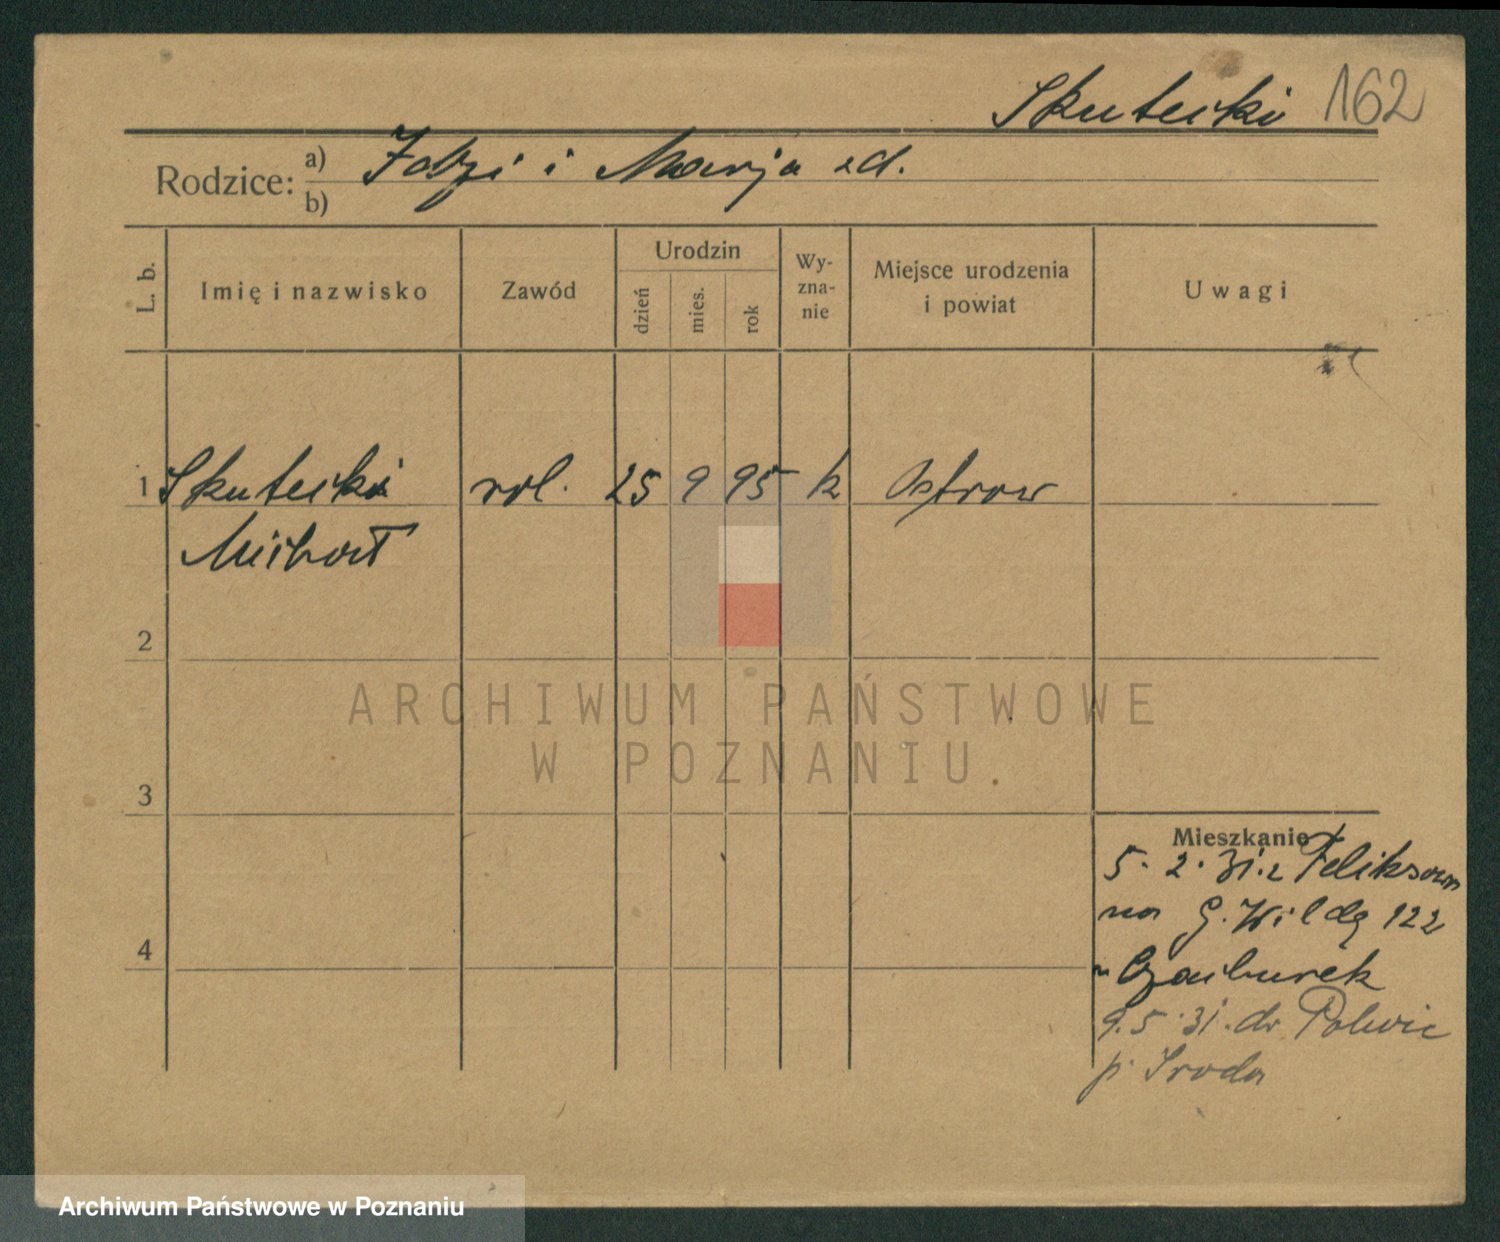 Skutecki 162
Rodzice: a) i Marja zd.
b)
L. b.
Imię i nazwisko
Zawód
Urodzin
dzień
mies.
rok
Wy-
zna-
nie
Miejsce urodzenia
i powiat
Uwagi
1 Skutecki rol. 25 9 95 k Ostrow
Michał
2
ARCHIWUM PAŃSTWOWE
W POZNANIU
3
Mieszkanie
5. 2. 31. z Feliksowa
na G. Wildą 122
4
9.5.31. do Polwic
p. Sroda
Archiwum Państwowe w Poznaniu